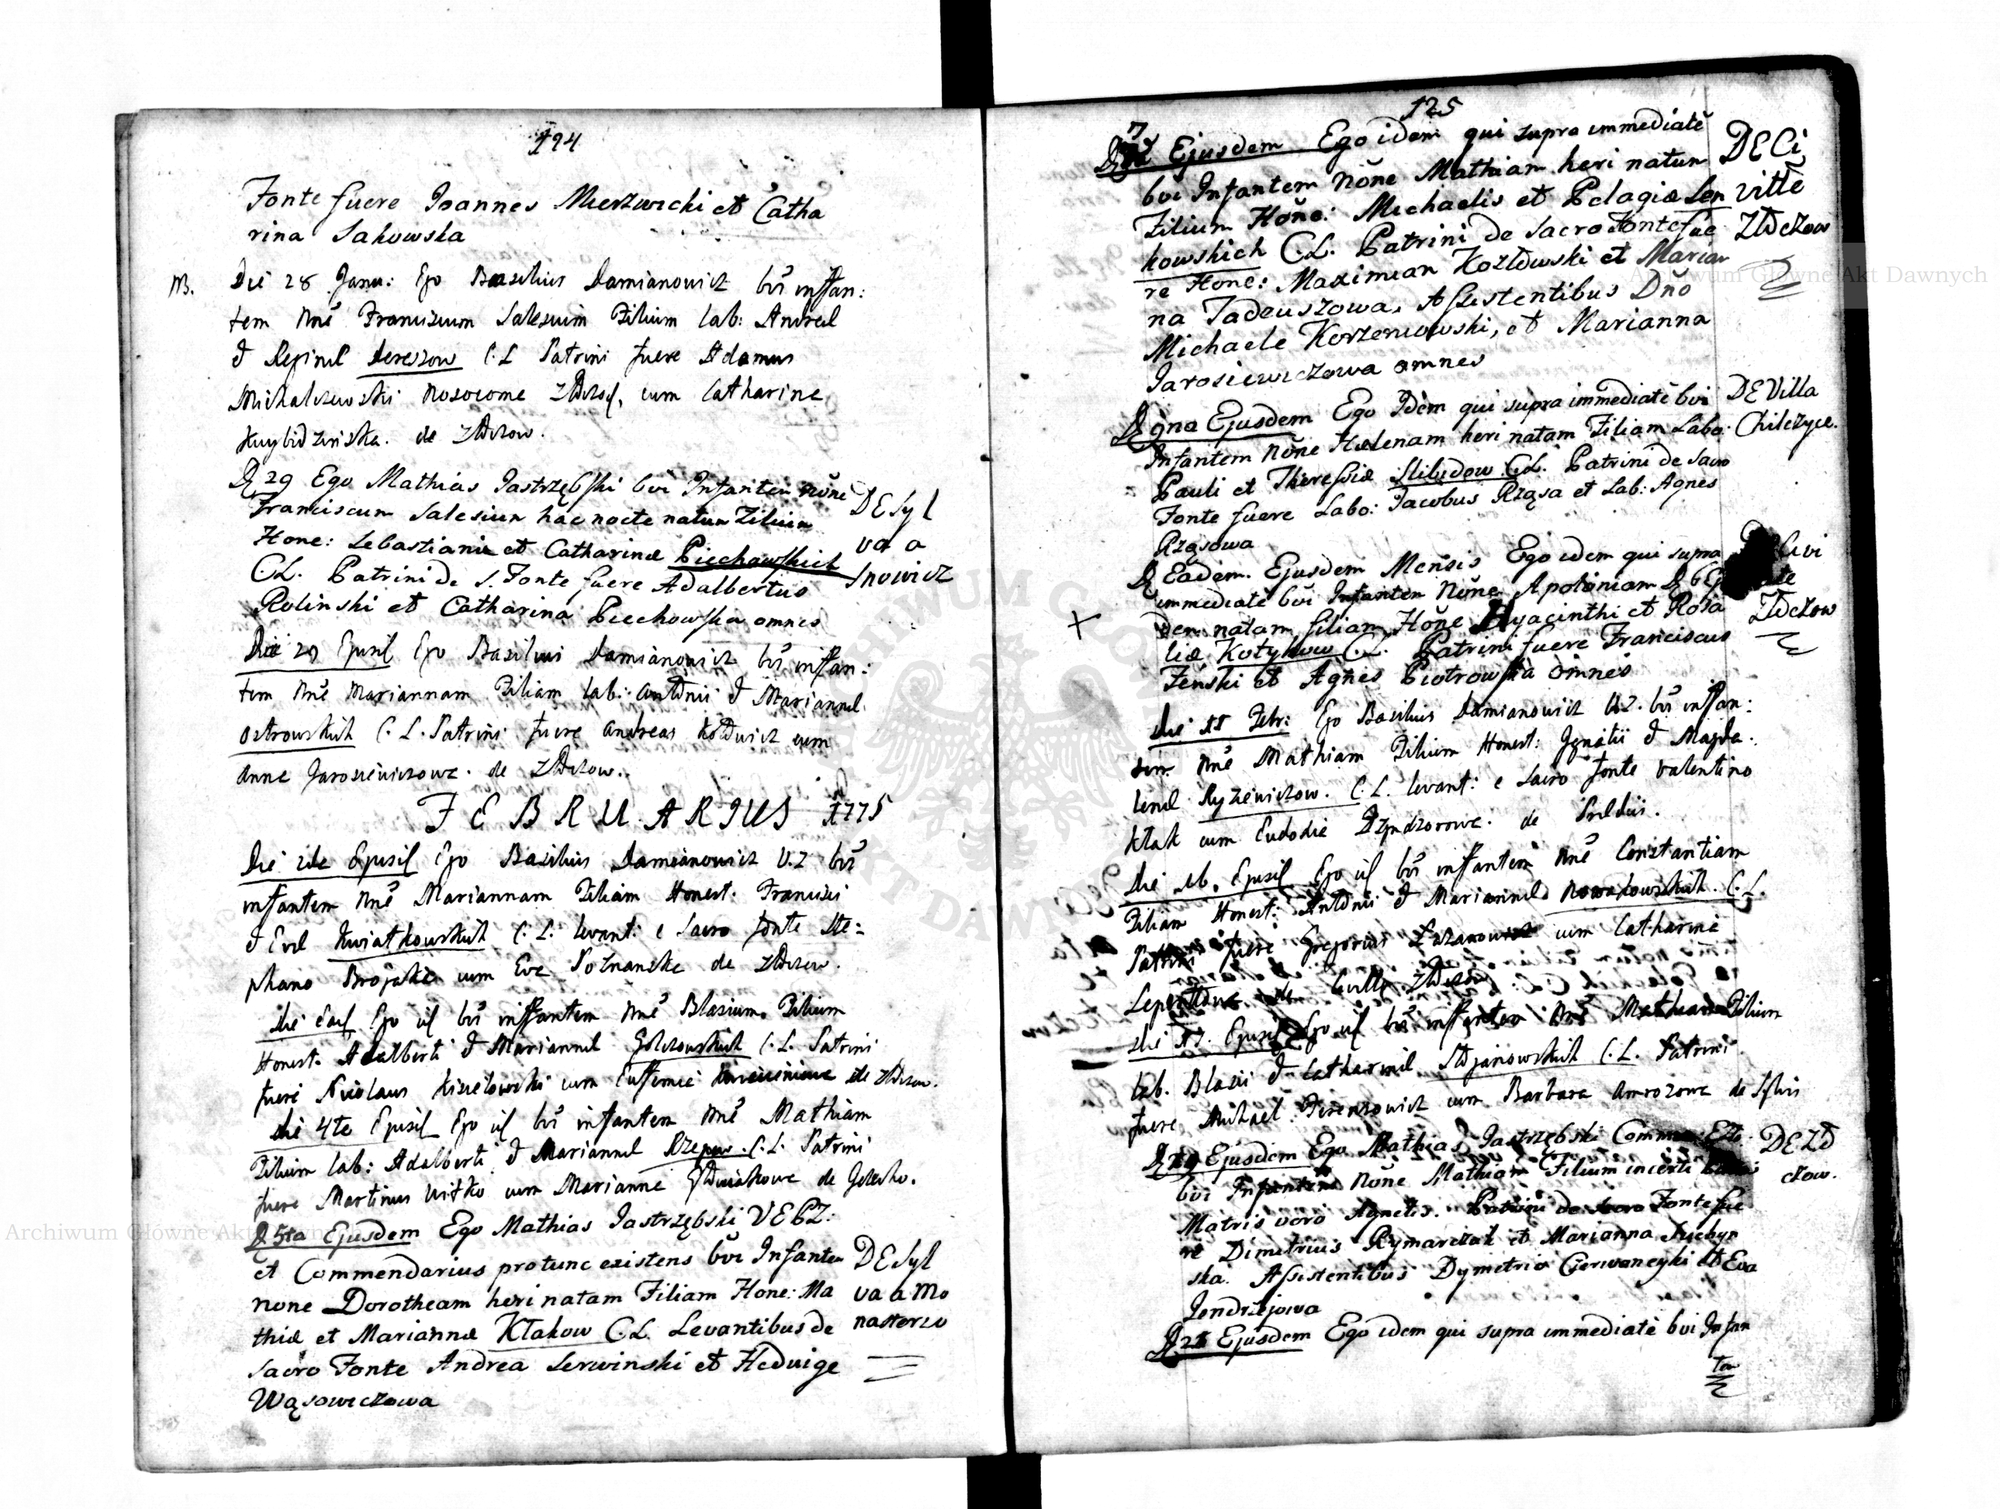 124
Fonte fuere Joannes Mierzwicki et Catha
rina Sakowska
NB. Die 28 Janu: Ego Basilius Damianowicz bŭi inffan:
tem nnē Franciscum Salesium Filium Lab: Andreæ
& Reginæ C. L. Patrini fuere Adamus
Michalczewski cum Catharina
de Złoczow.
D 29 Ego Mathias Jastrzębski bŭi Infantem nŏne
Franciscum Salesium hac nocte natum Filium
Hone: Sebastiani et Catharinæ Piechowskich
CL. Patrini de S. Fonte fuere Adalbertus
Rolinski et Catharina Piechowska omnes
DE Syl
va a
Snowicz
Die 29 Ejusd Ego Basilius Damianowicz bŭi inffan:
tem nnē Mariannam Filiam Lab: Antonii & Mariannæ
Ostrowskich C. L. Patrini fuere Andreas cum
Anna Jarosiewiczowa de Złoczow.
FEBRUARIUS 1775
Die 2da Ejusd Ego Basilius Damianowicz V.Z bŭi
inffantem nnē Mariannam Filiam Honest: Francisci
& Evæ Kwiatkowskich C. L. levant: e Sacro fonte Ste:
phano cum Eva Poznanska de Złoczow.
Die Ead Ego id bŭi inffantem nnē Blasium Filium
Honest: Adalberti & Mariannæ Golczowskich C. L. Patrini
fuere Nicolaus Kisielowski cum Euffemia de Złoczow.
Die 4ta Ejusd Ego id bŭi inffantem nnē Mathiam
Filium Lab: Adalberti & Mariannæ Rzepow C. L. Patrini
fuere Martinus Witko cum Marianna de
D 5ta Ejusdem Ego Mathias Jastrzębski VEPZ.
et Commendarius protunc existens bŭi Infantem
none Dorotheam heri natam Filiam Hone: Ma
thiæ et Mariannæ Kłakow CL. Levantibus de
Sacro Fonte Andrea Serwinski et Hedvige
Wąsowiczowa
DE Syl
va a Mo
nasterzo
125
D 7 Ejusdem Ego idem qui supra immediatē
bvi Infantem nŏne Mathiam heri natum
Filium Hone: Michaelis et Pelagiæ Sen
kowskich C.L. Patrini de Sacro Fonte fue
re Hone: Maximian Kozłowski et Marian
na Tadeuszowa, Assistentibus Dño
Michaele Korzeniowski, et Marianna
Jarosiewiczowa omnes
DE Ci
vitte
Złoczow
D 9na Ejusdem Ego Idem qui supra immediatē bvi
Infantem nŏne Helenam heri natam Filiam Labo:
Pauli et Theressiæ CL. Patrini de Sacro
Fonte fuere Labo: Jacobus Rząsa et Lab: Agnes
Rząsowa
DE Villa
Chilczyce.
D Eadem Ejusdem Mensis Ego idem qui supra
immediatē bvi Infantem Nŏne Apoloniam D 6
dem natam filiam Hŏne Hyacinthi et Rosa
liæ Kotykow C.L. Patrini fuere Franciscus
Zenski et Agnes Piotrowska omnes
Złoczow
Die 11 Febr: Ego Basilius Damianowicz V.Z. bŭi inffan:
tem nnē Mathiam Filium Honest: Ignatii & Magda
lenæ Ryzewiczow. C. L. levant: e Sacro fonte Valentino
Kłak cum Eudocia de
Die 16. Ejusd Ego id bŭi inffantem nnē Constantiam
Filiam Honest: Antonii & Mariannæ Nowakowskich. C. L.
Patrini fuere Gregorius cum Catharina
de Złoczow
Die 17. Ejusd Ego id bŭi inffantem nnē Mathiam Filium
Lab. Blasii & Catharinæ Stojanowskich C. L. Patrini
fuere Michael cum Barbara de
D 19 Ejusdem Ego Mathias Jastrzębski Comme:
bvi Infantem Nŏne Mathiam Filium incerti
Matris vero Agnetis. Patrini de Sacro Fonte fue
re Dimetrius Rymarczak et Marianna Suchyn
ska. Assistentibus Dymetrio et Eva
Jendrzejowa
DE Zło
czow.
D 21 Ejusdem Ego idem qui supra immediatē bvi Infan
tem